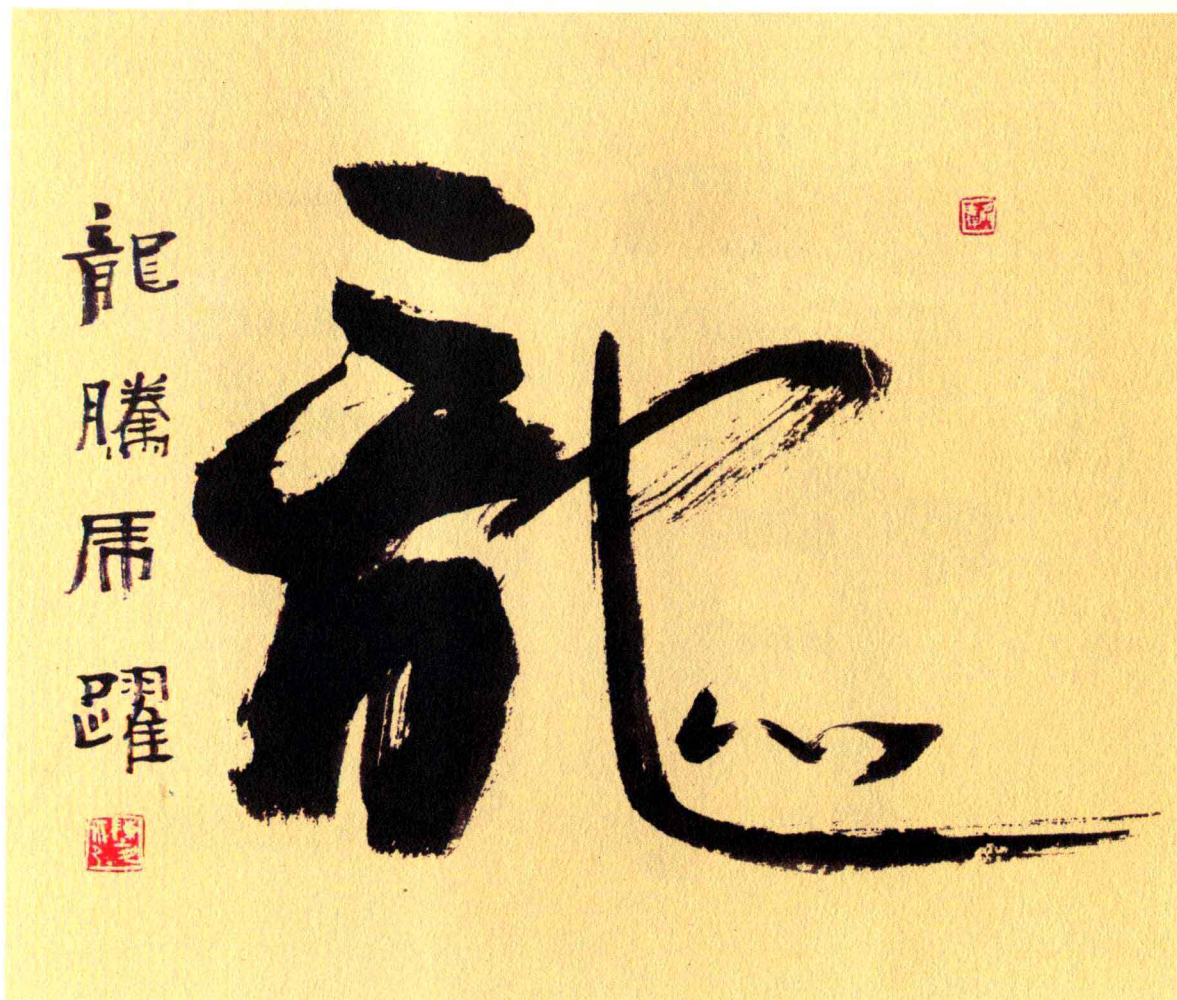 龍
龍騰虎躍